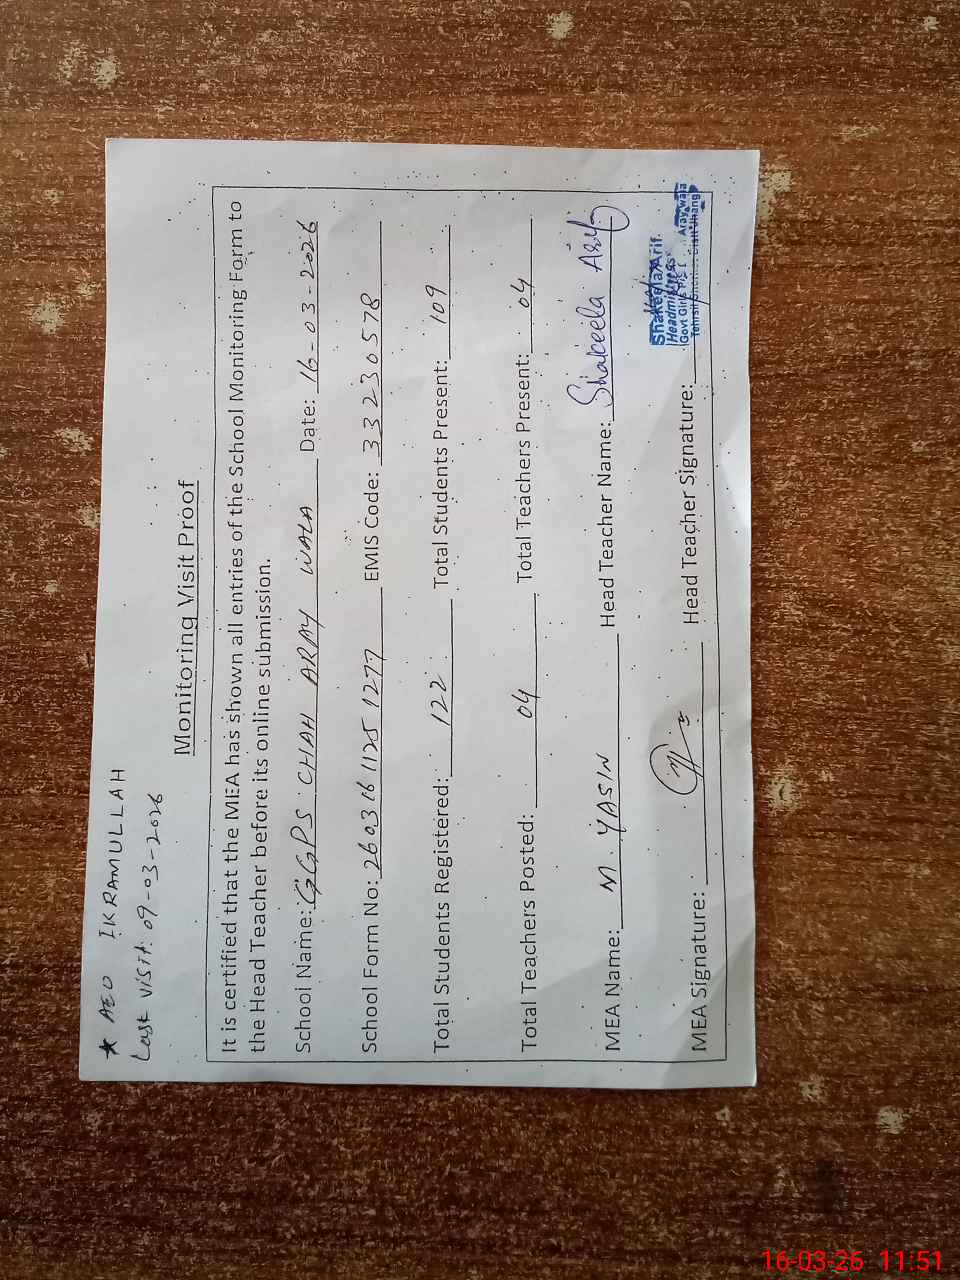 ★ AEO IKRAMULLAH
Last visit: 09-03-2026
Monitoring Visit Proof
It is certified that the MEA has shown all entries of the School Monitoring Form to
the Head Teacher before its online submission.
School Name: GGPS CHAH ARAY WALA Date: 16-03-2026
School Form No: 260316 1125 1277 EMIS Code: 33230578
Total Students Registered: 122 Total Students Present: 109
Total Teachers Posted: 04 Total Teachers Present: 04
MEA Name: M. YASIN Head Teacher Name: Shakeela Arif
MEA Signature: Head Teacher Signature:
Shakeela Arif
Headmistress
Govt Girls P/S Aray wala
Tehsil Distt Jhang
16-03-26 11:51